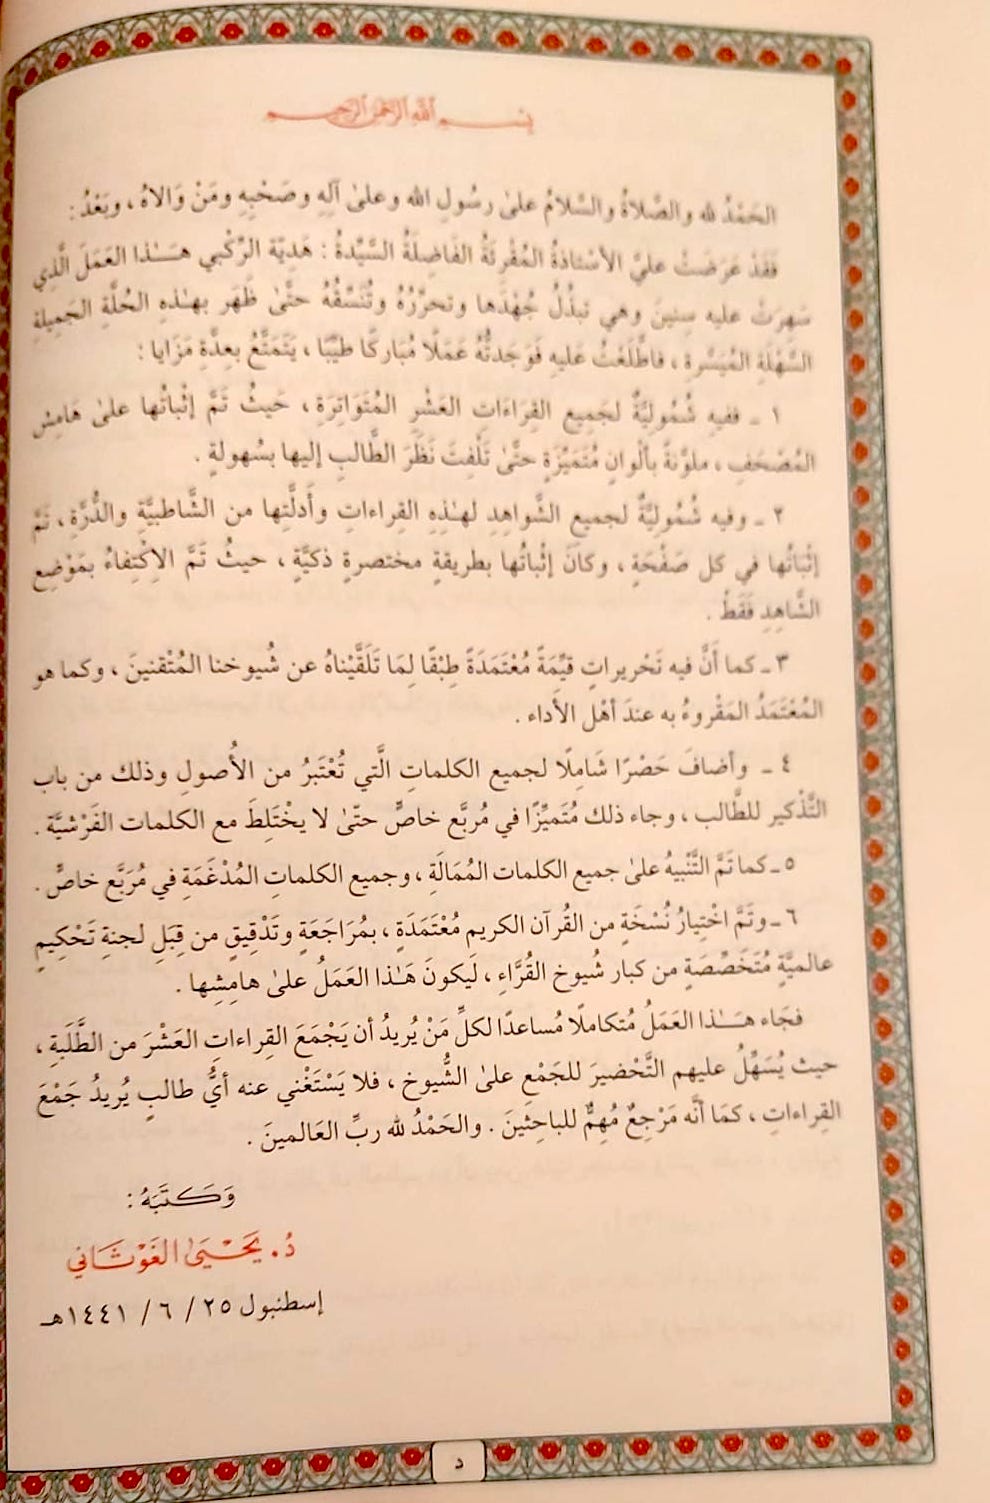 بسم الله الرحمن الرحيم
الحَمْدُ لله والصَّلاةُ والسَّلامُ علىٰ رسُولِ الله وعلىٰ آلِهِ وصَحْبِهِ ومَنْ وَالاهُ ، وبَعْدُ :
فَقَدْ عَرَضَتْ عليَّ الأسْتاذةُ المُقْرِئَةُ الفَاضِلَةُ السَّيِّدةُ : هَدِيّة الرِّكْبي هـَـٰـذا العَمَلَ الَّذِي
سَهِرَتْ عليه سِنِينَ وهي تبذُلُ جُهْدَها وتحرِّرُهُ وتُنَسِّقُهُ حتَّىٰ ظَهَر بهـٰذهِ الحُلَّةِ الجَمِيلةِ
السَّهْلَةِ المُيَسَّرةِ ، فاطَّلَعْتُ عليهِ فَوَجَدتُّهُ عَمَلًا مُباركًا طيِّبًا ، يَتَمَتَّعُ بعِدَّةِ مَزَايا :
١ ـ ففيهِ شُمُوليَّةٌ لجَميعِ القِرَاءَاتِ العَشْرِ المُتَوَاتِرَةِ ، حَيثُ تَمَّ إثْباتُها علىٰ هَامِشِ
المُصْحَفِ ، ملوَّنةً بألْوانٍ مُتَميِّزَةٍ حتَّىٰ تَلْفِتَ نَظَرَ الطَّالبِ إليها بسُهولةٍ .
٢ ـ وفيه شُمُوليَّةٌ لجميعِ الشَّواهِدِ لهـٰذِهِ القِراءاتِ وأَدلَّتِها من الشَّاطبيَّةِ والدُّرَّةِ ، تَمَّ
إثْباتُها في كل صَفْحَةٍ ، وكانَ إثْباتُها بطريقةٍ مختصرةٍ ذكيَّةٍ ، حيثُ تَمَّ الِاكْتِفاءُ بمَوْضِعِ
الشَّاهِدِ فَقَطْ .
٣ ـ كما أنَّ فيه تَحْريراتٍ قيِّمَةً مُعْتَمَدَةً طِبْقًا لِمَا تَلَقَّيْناهُ عن شُيوخنا المُتْقنينَ ، وكما هو
المُعْتَمَدُ المَقْروءُ به عندَ أهْلِ الأداء .
٤ ـ وأضافَ حَصْرًا شَامِلًا لجميعِ الكلماتِ الَّتي تُعْتَبَرُ من الأُصولِ وذلك من باب
التَّذْكيرِ للطَّالب ، وجاء ذلك مُتَميِّزًا في مُربَّع خاصٍّ حتَّىٰ لا يخْتَلِطَ مع الكلمات الفَرْشيَّة .
٥ ـ كما تَمَّ التَّنْبيهُ علىٰ جميع الكلمات المُمَالَةِ ، وجميع الكلماتِ المُدْغَمَةِ في مُرَبَّع خاصٍّ .
٦ ـ وتَمَّ اخْتِيارُ نُسْخَةٍ من القُرآن الكريم مُعْتَمَدَةٍ ، بمُرَاجَعَةٍ وتَدْقِيقٍ من قِبَلِ لجنةِ تَحْكِيمٍ
عالميَّةٍ مُتَخَصِّصَةٍ من كبار شُيوخ القُرَّاءِ ، لَيكونَ هَـٰذا العَمَلُ علىٰ هامِشِها .
فجَاء هـَـٰـذا العَمَلُ مُتكاملًا مُساعدًا لكلِّ مَنْ يُريدُ أن يَجْمَعَ القِراءاتِ العَشْرَ من الطَّلَبَةِ ،
حيث يُسَهِّلُ عليهم التَّحْضيرَ للجَمْعِ علىٰ الشُّيوخِ ، فلا يَسْتَغْني عنه أيُّ طالبٍ يُريدُ جَمْعَ
القِراءاتِ ، كمَا أنَّه مَرْجِعٌ مُهِمٌّ للباحِثينَ . والحَمْدُ لله ربِّ العَالمينَ .
وَكَتَبَهُ :
دُ. يَحْيَىٰ الغَوْثَانِي
إسطنبول ٢٥ / ٦ / ١٤٤١هـ
د